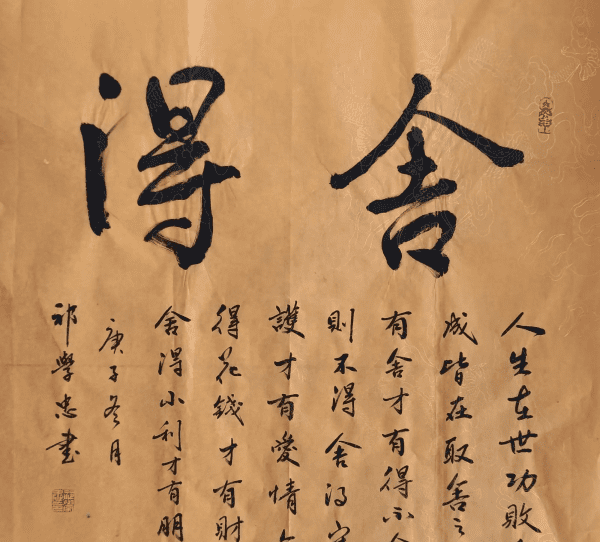 舍得
人生在世功敗
成皆在取舍之
有舍才有得不
則不得舍得
護才有愛情
得花錢才有財
舍得小利才有朋
庚子冬月
祁學忠書